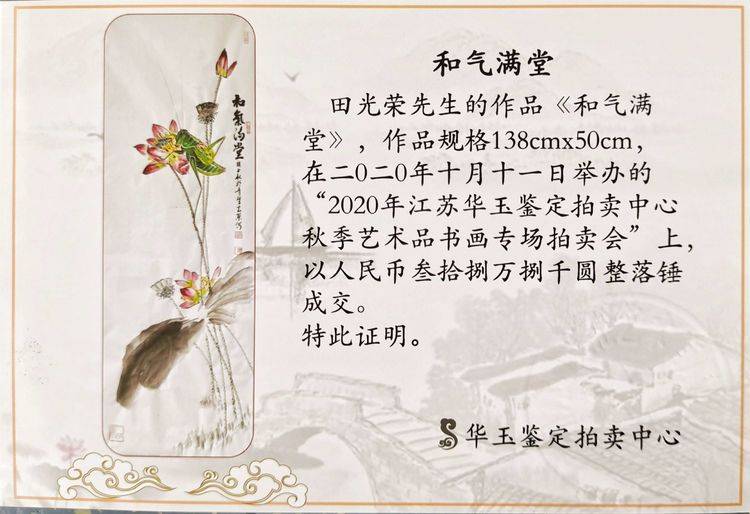 和气满堂
田光荣先生的作品《和气满
堂》，作品规格138cmx50cm，
在二〇二〇年十月十一日举办的
“2020年江苏华玉鉴定拍卖中心
秋季艺术品书画专场拍卖会”上，
以人民币叁拾捌万捌千圆整落锤
成交。
特此证明。
华玉鉴定拍卖中心
和氣满堂